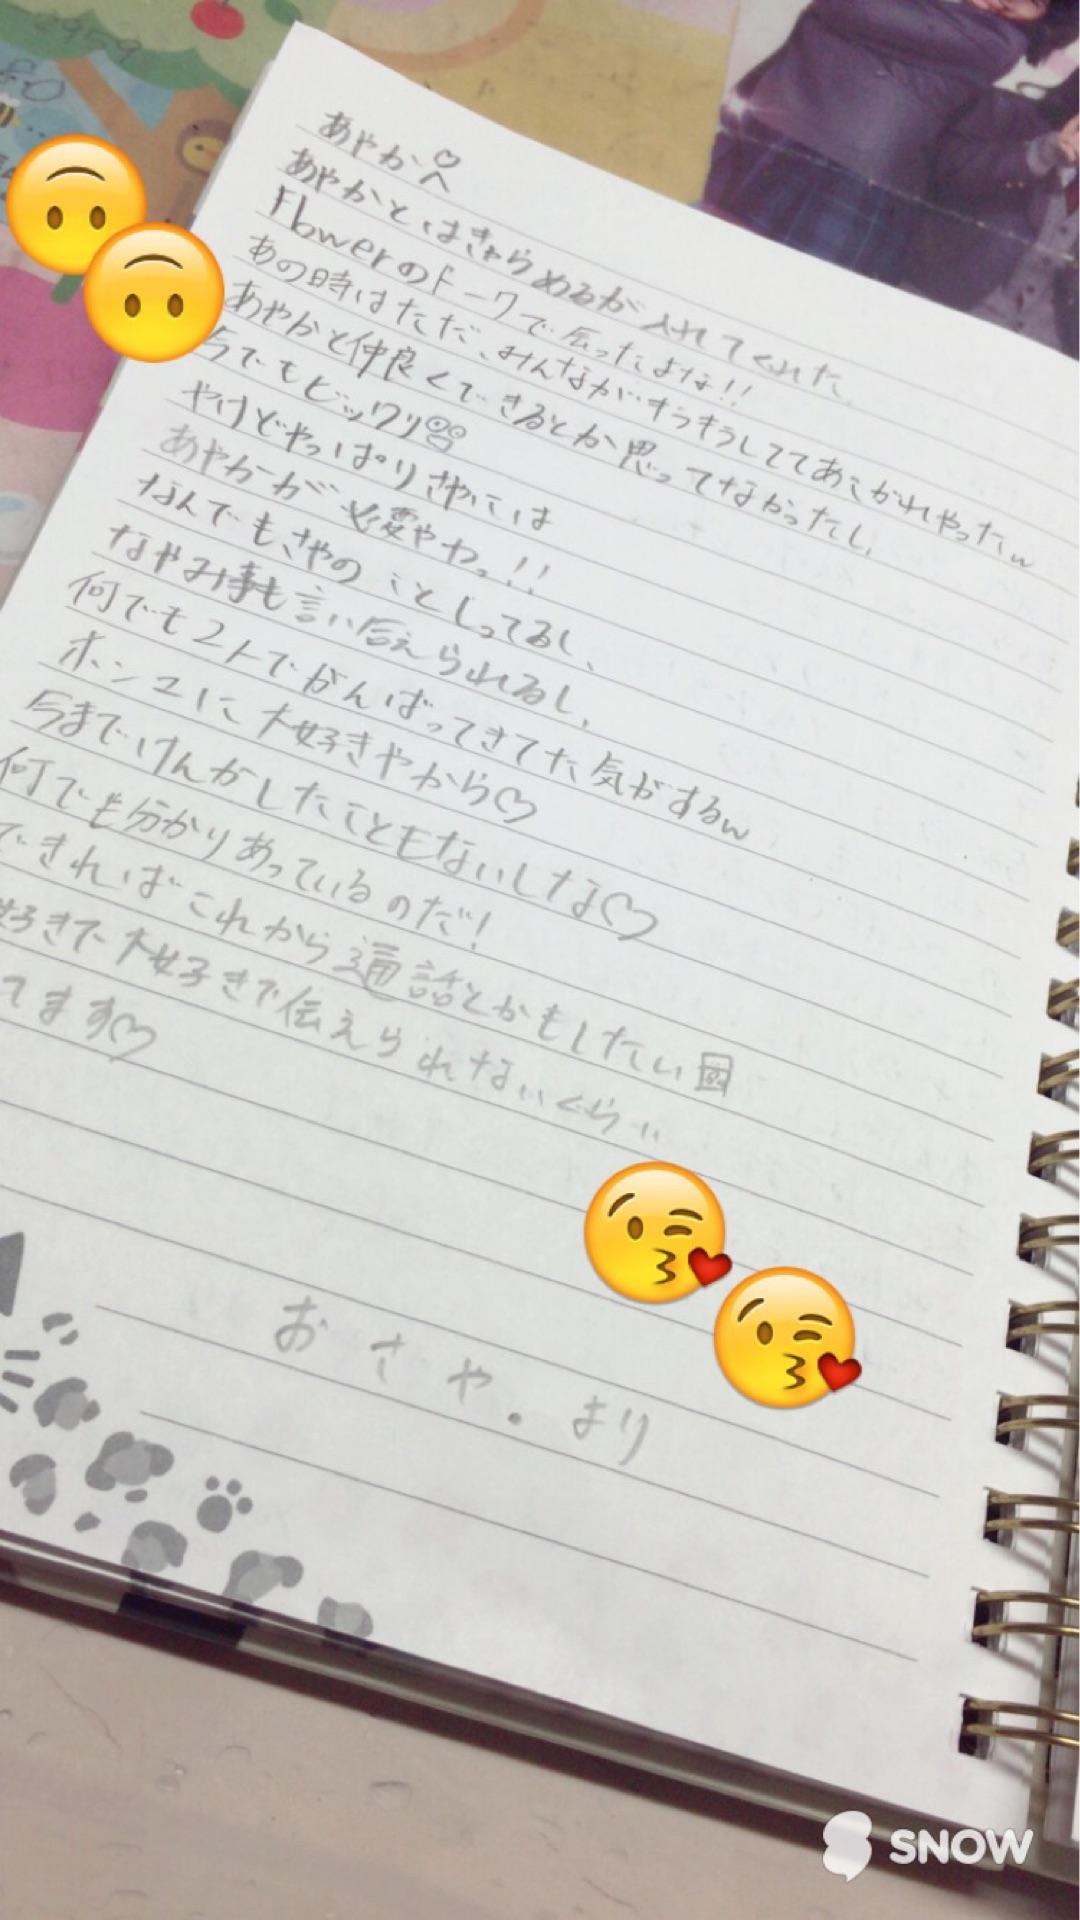 あやかへ♡
あやかとはきゃらめるが入れてくれた、
Flowerのトークで会ったよな!!
あの時はただ、みんながキラキラしててあこがれやったしw
あやかと仲良くできるとか思ってなかったし、
今でもビックリ
やけどやっぱりさやには
あやかが必要やわっ!!
なんでもさやのことしってるし、
なやみ事も言い合えられるし、
何でも2人でがんばってきてた気がするw
ホンマに大好きやから♡
今までけんかしたこともないしな♡
何でも分かりあっているのだ!
できればこれから通話とかもしたい
好きで大好きで伝えられないくらい
てます♡
おさや。より
SNOW